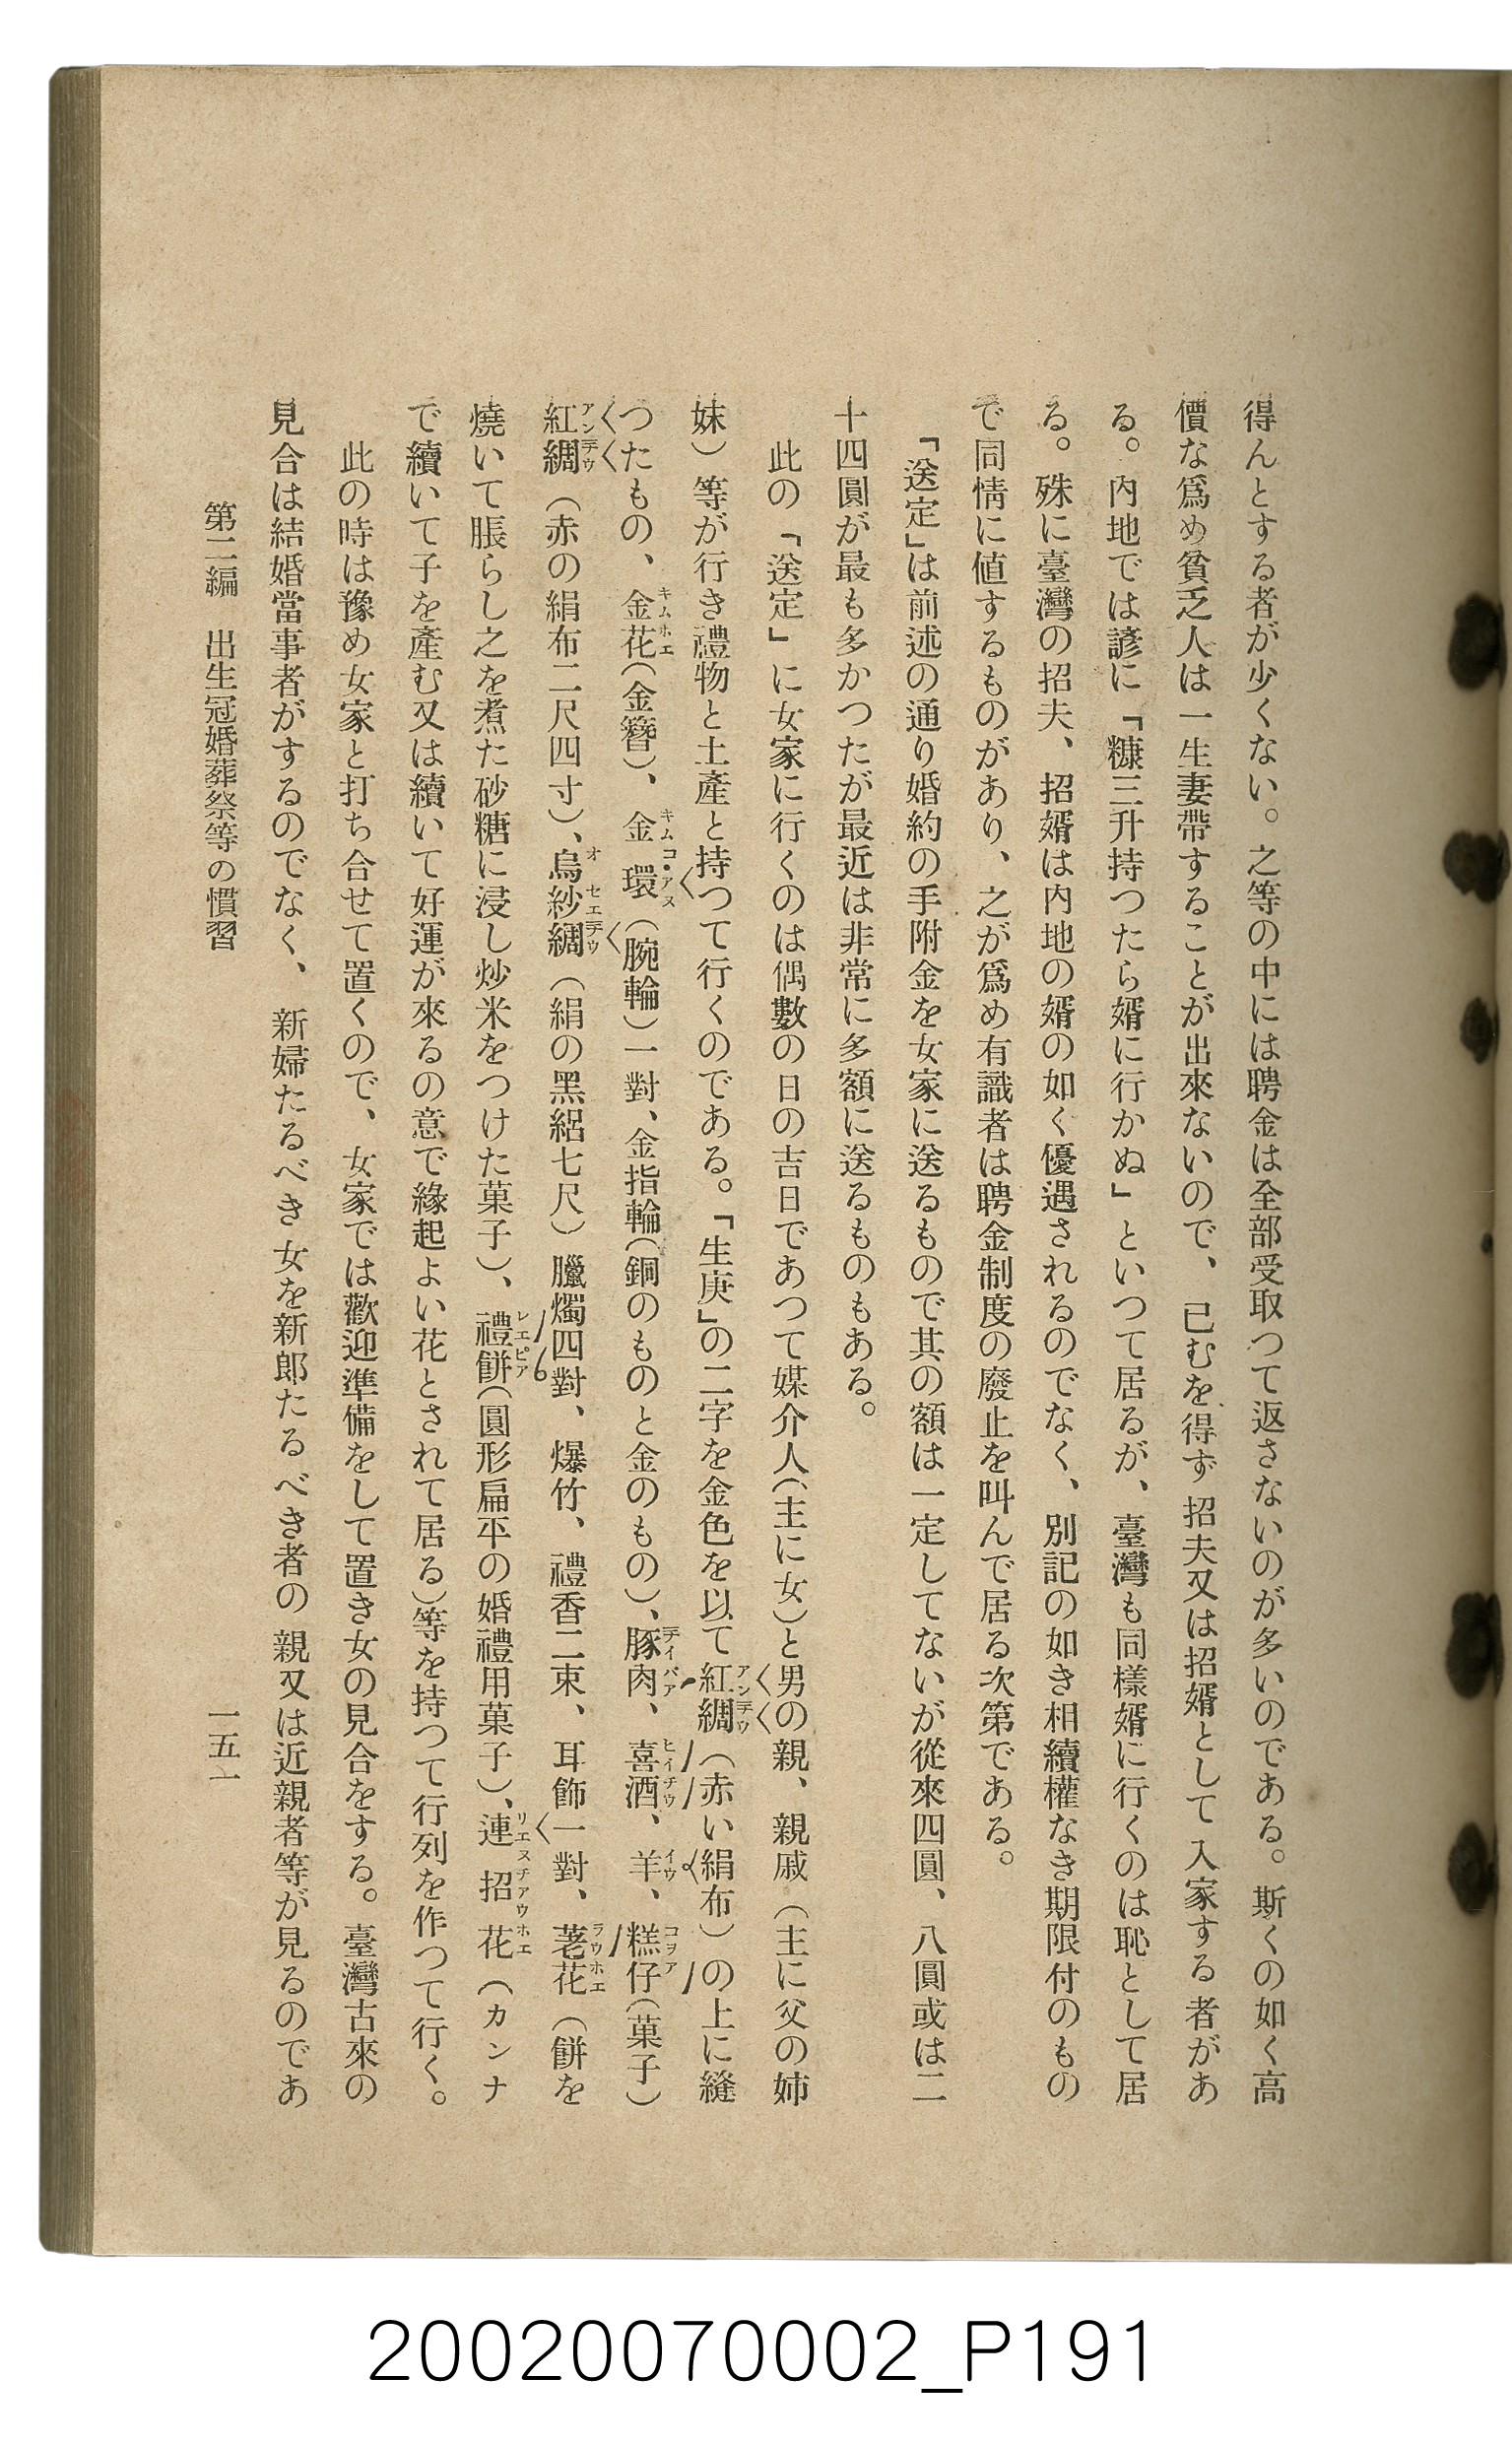 得んとする者が少くない。之等の中には聘金は全部受取つて返さないのが多いのである。斯くの如く高
價な爲め貧乏人は一生妻帶することが出來ないので、已むを得ず招夫又は招婿として入家する者があ
る。內地では諺に「糠三升持つたら婿に行かぬ」といつて居るが、臺灣も同樣婿に行くのは恥として居
る。殊に臺灣の招夫、招婿は內地の婿の如く優遇されるのでなく、別記の如き相續權なき期限付のもの
で同情に値するものがあり、之が爲め有識者は聘金制度の廢止を叫んで居る次第である。
「送定」は前述の通り婚約の手附金を女家に送るもので其の額は一定してないが從來四圓、八圓或は二
十四圓が最も多かつたが最近は非常に多額に送るものもある。
此の「送定」に女家に行くのは偶數の日の吉日であつて媒介人(主に女)と男の親、親戚(主に父の姉
妹)等が行き禮物と土產と持つて行くのである。「生庚」の二字を金色を以て紅綢(赤い絹布)の上に縫
つたもの、金花(金簪)、金環(腕輪)一對、金指輪(銅のものと金のもの)、豚肉、喜酒、羊、糕仔(菓子)
紅綢(赤の絹布二尺四寸)、烏紗綢(絹の黑絽七尺)臘燭四對、爆竹、禮香二束、耳飾一對、荖花(餅を
燒いて脹らし之を煮た砂糖に浸し炒米をつけた菓子)、禮餅(圓形扁平の婚禮用菓子)、連招花(カンナ
で續いて子を產む又は續いて好運が來るの意で緣起よい花とされて居る)等を持つて行列を作つて行く。
此の時は豫め女家と打ち合せて置くので、女家では歡迎準備をして置き女の見合をする。臺灣古來の
見合は結婚當事者がするのでなく、新婦たるべき女を新郞たるべき者の親又は近親者等が見るのであ
第二編 出生冠婚葬祭等の慣習 一五一
20020070002_P191